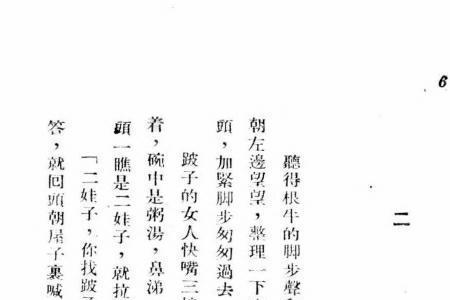 6
二
聽得根牛的脚步聲
朝左邊望望，整理一下
頭，加緊脚步匆匆過去
跛子的女人快嘴三
着，碗中是粥湯，鼻涕
頭一瞧是二娃子，就拉
「二娃子，你找跛子
答，就回頭朝屋子裏喊